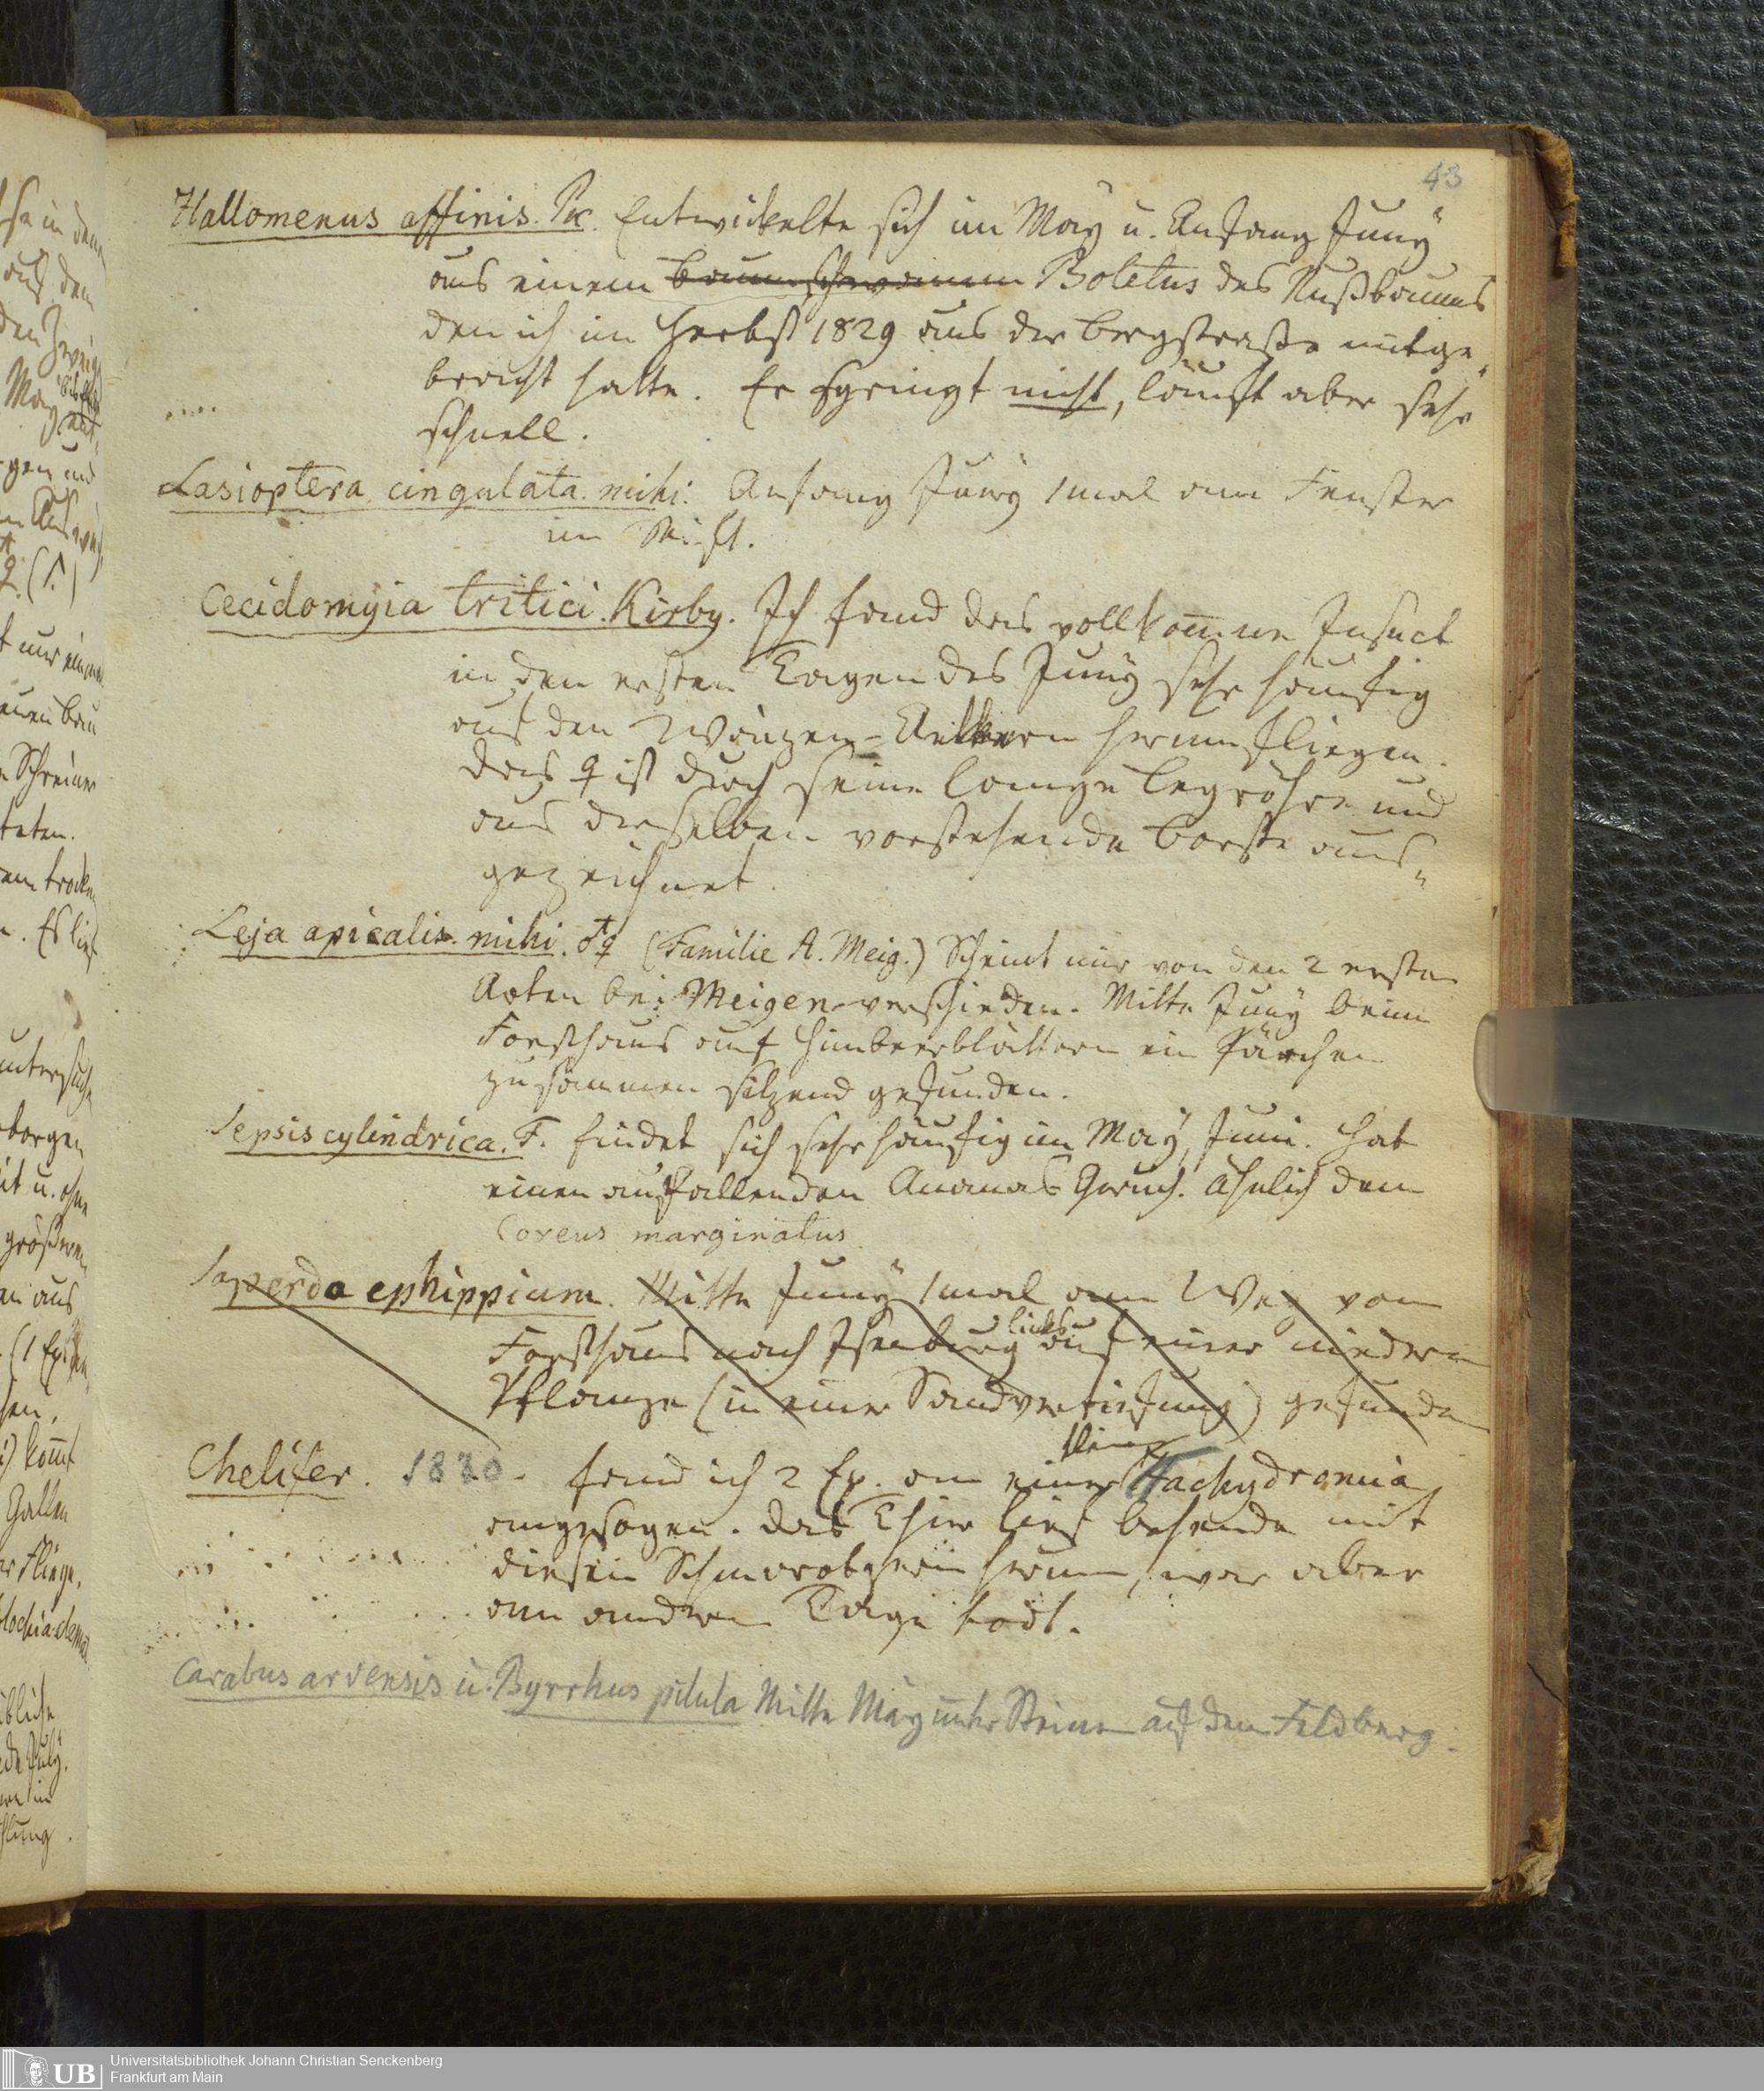 43
Hallomenus affinis. Pk. Entwickelte sich im May u. Anfang Juny
aus einem Baumschwamm Boletus des Nußbaumes
den ich im Herbst 1829 aus der Bergstraße mitge„
bracht hatte. Er springt nicht, läuft aber sehr
schnell.
Lasioptera cingulata. mihi. Anfang Juny 1mal am Fenster
im Stift.
Cecidomyia tritici. Kirby. Ich fand das vollkom̅ne Insect
in den ersten Tagen des Juny sehr häufig
auf den Waizen-Aeckern herumfliegen.
Das ♀ ist durch seine lange Legröhre und
aus derselben vorstehende Borste aus„
gezeichnet.
Leja apicalis. mihi. ♂♀ (Familie A. Meig.) Scheint mir von den 2 ersten
Arten bei Meigen verschieden. Mitte Juny beim
Forsthaus auf Himbeerblättern ein Pärchen
zusammen sitzend gefunden.
Sepsis cylindrica. F. findet sich sehr häufig im May, Juni. Hat
einen auffallenden Ananas Geruch. ähnlich dem
Coreus marginatus
Saperda ephippium. Mitte Juny 1mal am Weg vom
Forsthaus nach Isenburg links auf einer niedern
Pflanze (in einer Sandvertiefung) gefunden
Chelifer. 1830. fand ich 2 Ex. an einer kleinen Tachydromia
angesogen. Das Thier lief behende mit
diesen Schmarotzern herum, war aber
am andern Tage todt.
Carabus arvensis u. Byrrhus pilula Mitte May unter Steinen auf dem Feldberg.
UB
Universitätsbibliothek Johann Christian Senckenberg
Frankfurt am Main